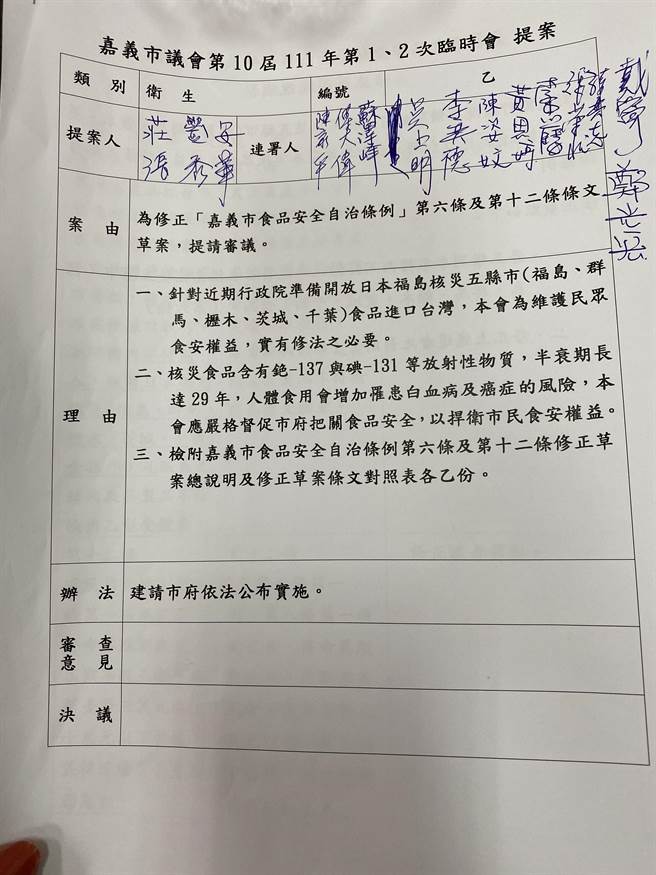 嘉義市議會第10屆111年第1、2次臨時會 提案
類別 衛生 編號 乙
提案人 莊豐安 張秀華 連署人 陳家平 傅大偉 蘇澤峰 吳士明 李奕德 陳姿妏 黃思婷 戴寧 鄭光宏
案由 為修正「嘉義市食品安全自治條例」第六條及第十二條條文
草案,提請審議。
理由
一、針對近期行政院準備開放日本福島核災五縣市(福島、群
馬、櫪木、茨城、千葉)食品進口台灣,本會為維護民眾
食安權益,實有修法之必要。
二、核災食品含有銫-137與碘-131等放射性物質,半衰期長
達29年,人體食用會增加罹患白血病及癌症的風險,本
會應嚴格督促市府把關食品安全,以捍衛市民食安權益。
三、檢附嘉義市食品安全自治條例第六條及第十二條修正草
案總說明及修正草案條文對照表各乙份。
辦法 建請市府依法公布實施。
審查
意見
決議